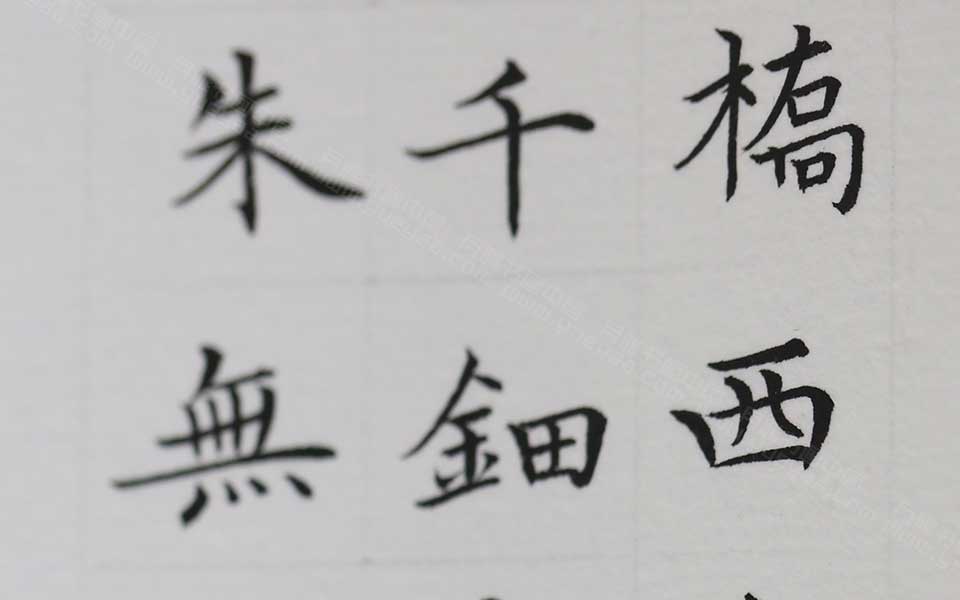 橋西
千鈿
朱無